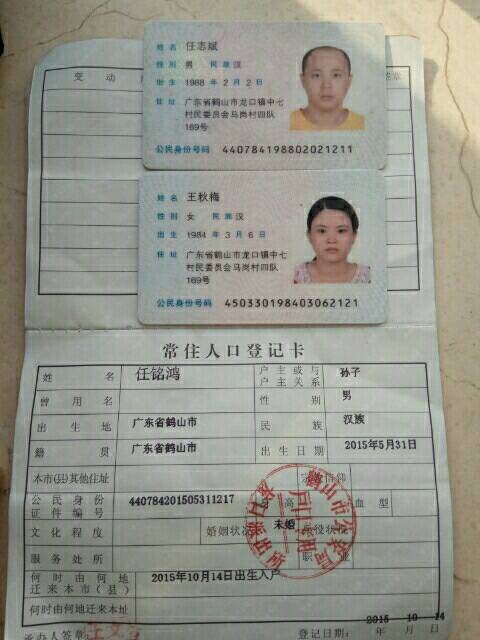 变动
签章
姓名 任志斌
性别 男 民族 汉
出生 1988 年 2 月 2 日
住址 广东省鹤山市龙口镇中七
村民委员会马岗村四队
169号
公民身份号码 440784198802021211
姓名 王秋梅
性别 女 民族 汉
出生 1984 年 3 月 6 日
住址 广东省鹤山市龙口镇中七
村民委员会马岗村四队
169号
公民身份号码 450330198403062121
常住人口登记卡
姓名 任铭鸿 户主或与户主关系 孙子
曾用名 性别 男
出生地 广东省鹤山市 民族 汉族
籍贯 广东省鹤山市 出生日期 2015年5月31日
本市(县)其他住址 宗教信仰
公民身份证件编号 440784201505311217 身高 血型
文化程度 婚姻状况 未婚 兵役状况
服务处所 职业
何时由何地迁来本市(县) 2015年10月14日出生入户
何时由何地迁来本址
承办人签章 登记日期: 2015 年 10 月 14 日